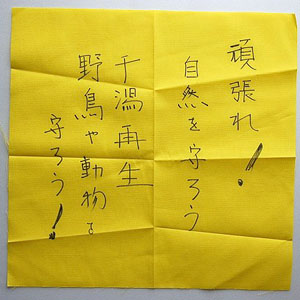 頑張れ!
自然を守ろう
干潟再生
野鳥や動物を
守ろう!